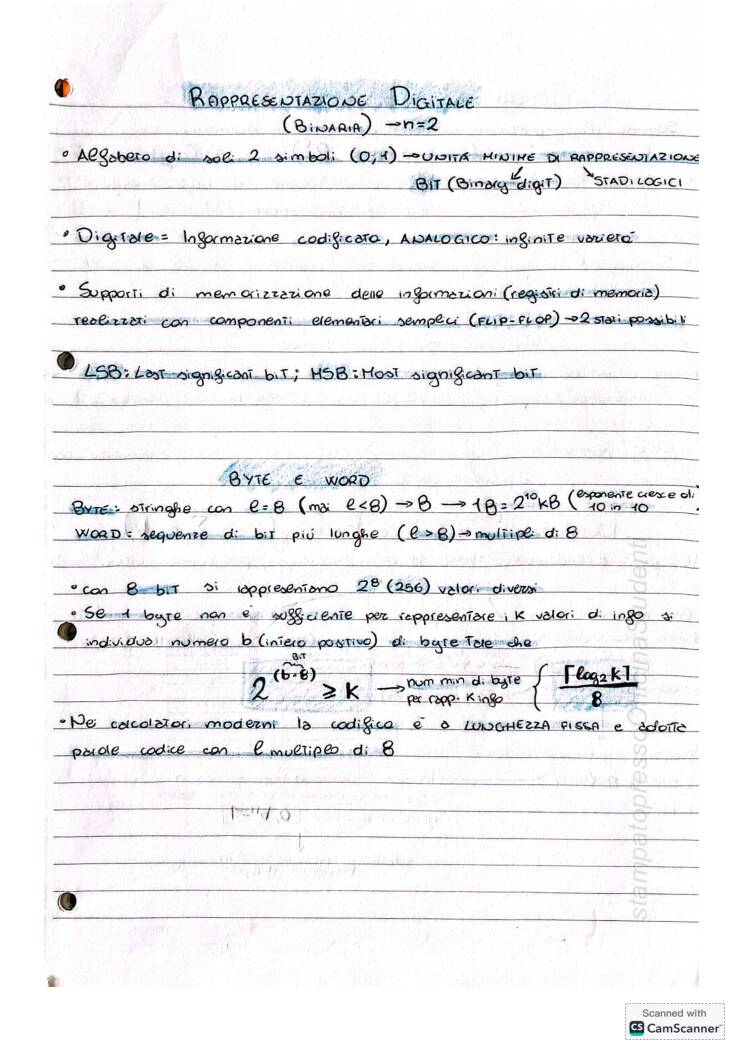 RAPPRESENTAZIONE DIGITALE
(BINARIA) → n=2
• Alfabeto di soli 2 simboli (0,1) → UNITÀ MINIME DI RAPPRESENTAZIONE
BIT (Binary digit) STADI LOGICI
• Digitale = Informazione codificata, ANALOGICO: infinite varietà
• Supporti di memorizzazione delle informazioni (registri di memoria)
realizzati con componenti elementari semplici (FLIP-FLOP) → 2 stati possibili
LSB: Last significant bit; MSB: Most significant bit
BYTE E WORD
BYTE: stringhe con l=8 (mai l<8) → B → 1B = 2¹⁰kB (esponente cresce di
10 in 10
WORD: sequenze di bit più lunghe (l>8) → multipli di 8
• con 8 bit si rappresentano 2⁸ (256) valori diversi
• Se 1 byte non è sufficiente per rappresentare i K valori di info si
individua numero b (intero positivo) di byte tale che
BIT
2^(b·8) ≥ K → num min di byte per rapp. K info { ⌈log₂K⌉/8
• Nei calcolatori moderni la codifica è a LUNGHEZZA FISSA e adotta
parole codice con l multiplo di 8
Scanned with
CS CamScanner